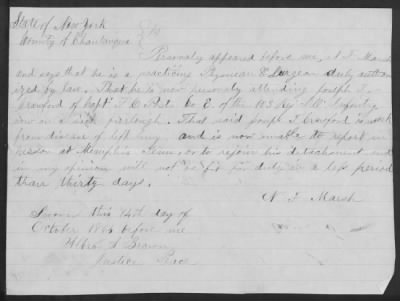 State of New York
County of Chautauqua } ss
Personaly appeared before me, N. F. Marsh
and says that he is a practicing Physician & Surgeon duly author
ized by law. That he is now personaly attending Joseph T.
Crawford of Capt Co E. of the 103 Regt Infantry
now on a sick furlough. That said Joseph T. Crawford is sick
from disease of left lung and is now unable to report in
person at Memphis Tenn, or to rejoin his detachment and
in my opinion will not be fit for duty in a less period
than thirty days.
N F Marsh
Sworn this 14th day of
October 186 before me
Justice Peace